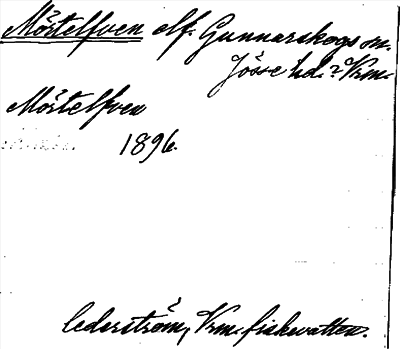 Mörtelfven elf. Gunnarskogs sn.
Jösse hd. Vrm.
Mörtelfven
1896.
Cederström, Vrm. fiskevatten.